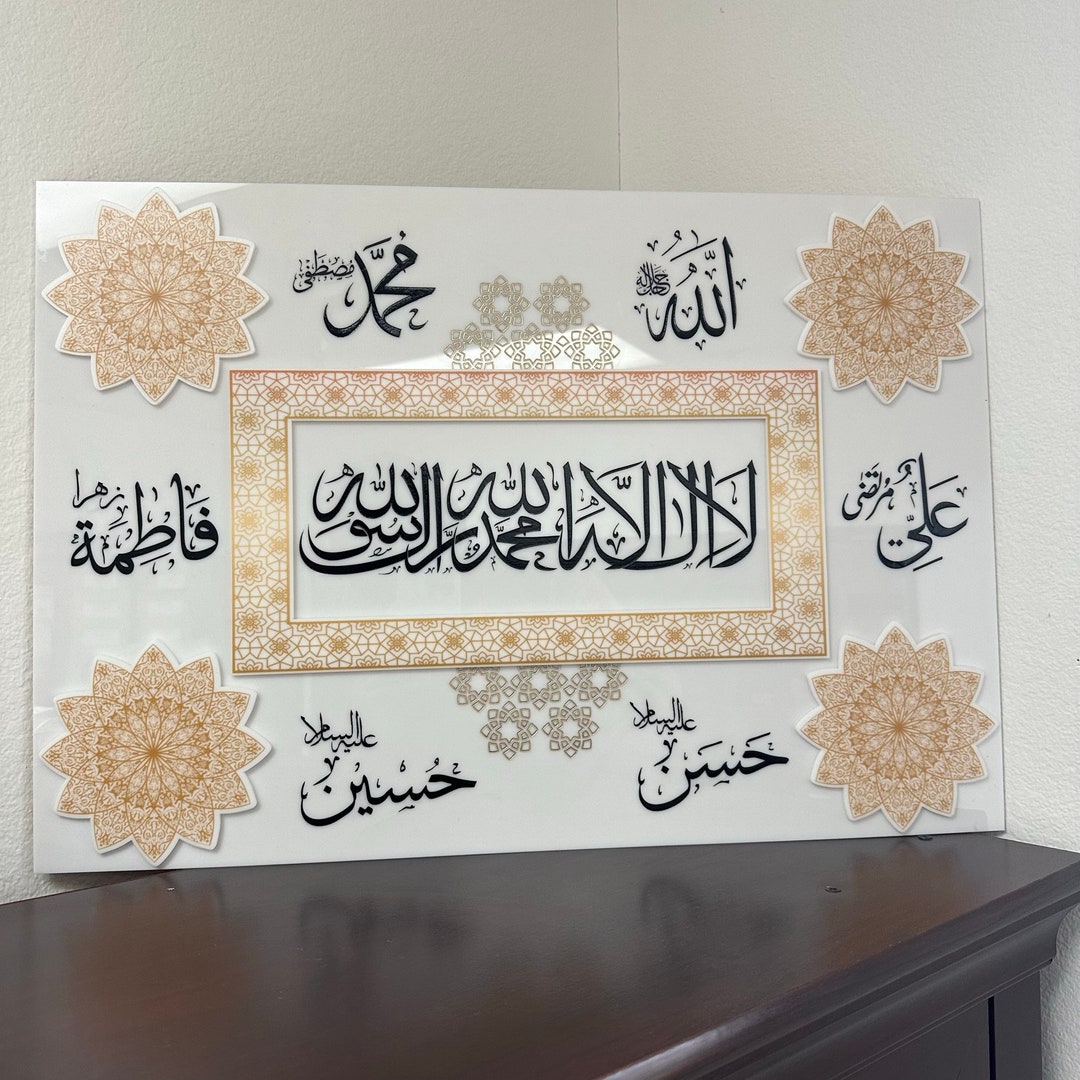 اللّٰه جل جلاله
محمّد مصطفى
عَلِيّ مُرتَضى
لا اله الا الله محمد رسول الله
فَاطِمَة زهرا
حَسَن عليه السلام
حُسَين عليه السلام